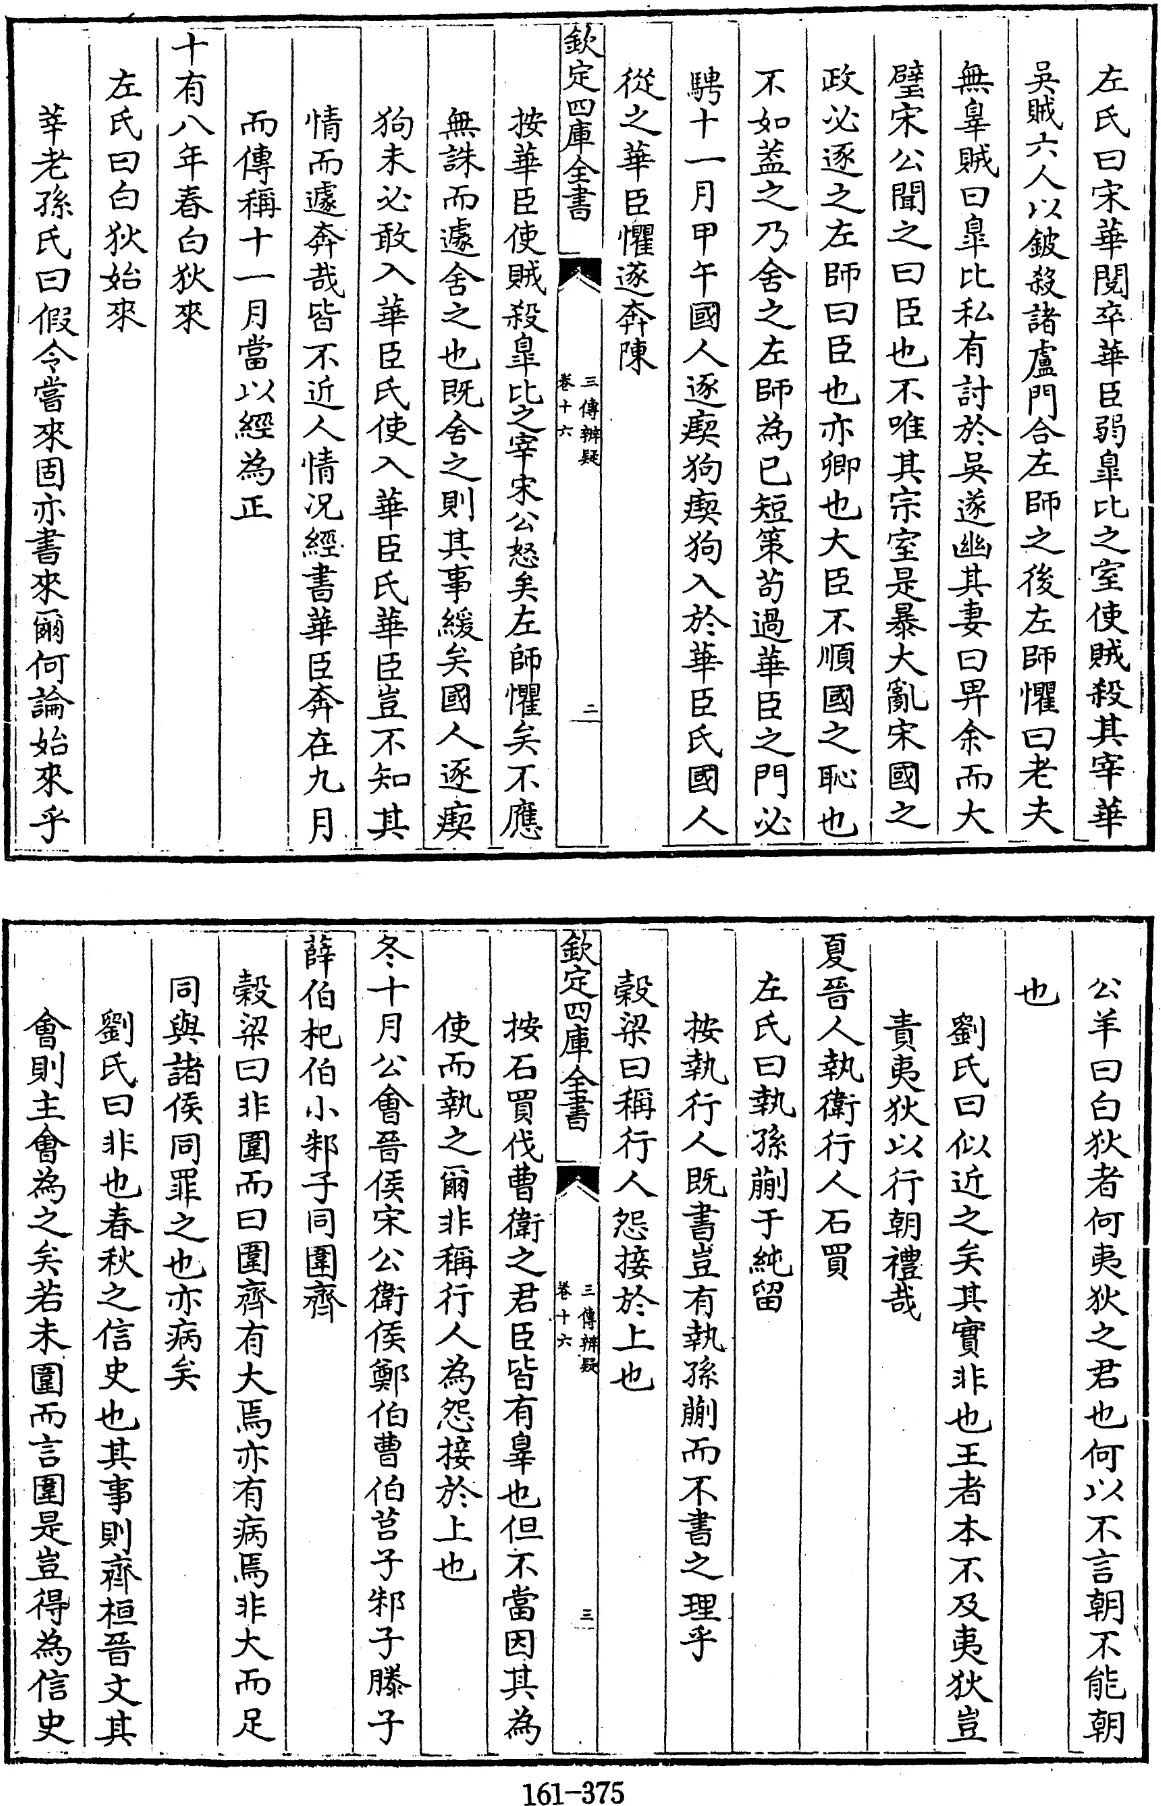 左氏曰宋華閱卒華臣弱臯比之室使賊殺其宰華
吳賊六人以鈹殺諸盧門合左師之後左師懼曰老夫
無臯賊曰臯比私有討於吳遂幽其妻曰畀余而大
璧宋公聞之曰臣也不唯其宗室是暴大亂宋國之
政必逐之左師曰臣也亦卿也大臣不順國之恥也
不如葢之乃舍之左師為已短策茍過華臣之門必
騁十一月甲午國人逐瘈狗瘈狗入於華臣氏國人
從之華臣懼遂奔陳
欽定四庫全書
三傳辨疑
卷十六
二
按華臣使賊殺臯比之宰宋公怒矣左師懼矣不應
無誅而遽舍之也既舍之則其事緩矣國人逐瘈
狗未必敢入華臣氏使入華臣氏華臣豈不知其
情而遽奔哉皆不近人情況經書華臣奔在九月
而傳稱十一月當以經為正
十有八年春白狄來
左氏曰白狄始來
莘老孫氏曰假令嘗來固亦書來爾何論始來乎
公羊曰白狄者何夷狄之君也何以不言朝不能朝
也
劉氏曰似近之矣其實非也王者本不及夷狄豈
責夷狄以行朝禮哉
夏晉人執衛行人石買
左氏曰執孫蒯于純留
按執行人既書豈有執孫蒯而不書之理乎
榖梁曰稱行人怨接於上也
欽定四庫全書
三傳辨疑
卷十六
三
按石買伐曹衛之君臣皆有臯也但不當因其為
使而執之爾非稱行人為怨接於上也
冬十月公會晉侯宋公衛侯鄭伯曹伯莒子邾子滕子
薛伯杞伯小邾子同圍齊
榖梁曰非圍而曰圍齊有大焉亦有病焉非大而足
同與諸侯同罪之也亦病矣
劉氏曰非也春秋之信史也其事則齊桓晉文其
會則主會為之矣若未圍而言圍是豈得為信史
161-375